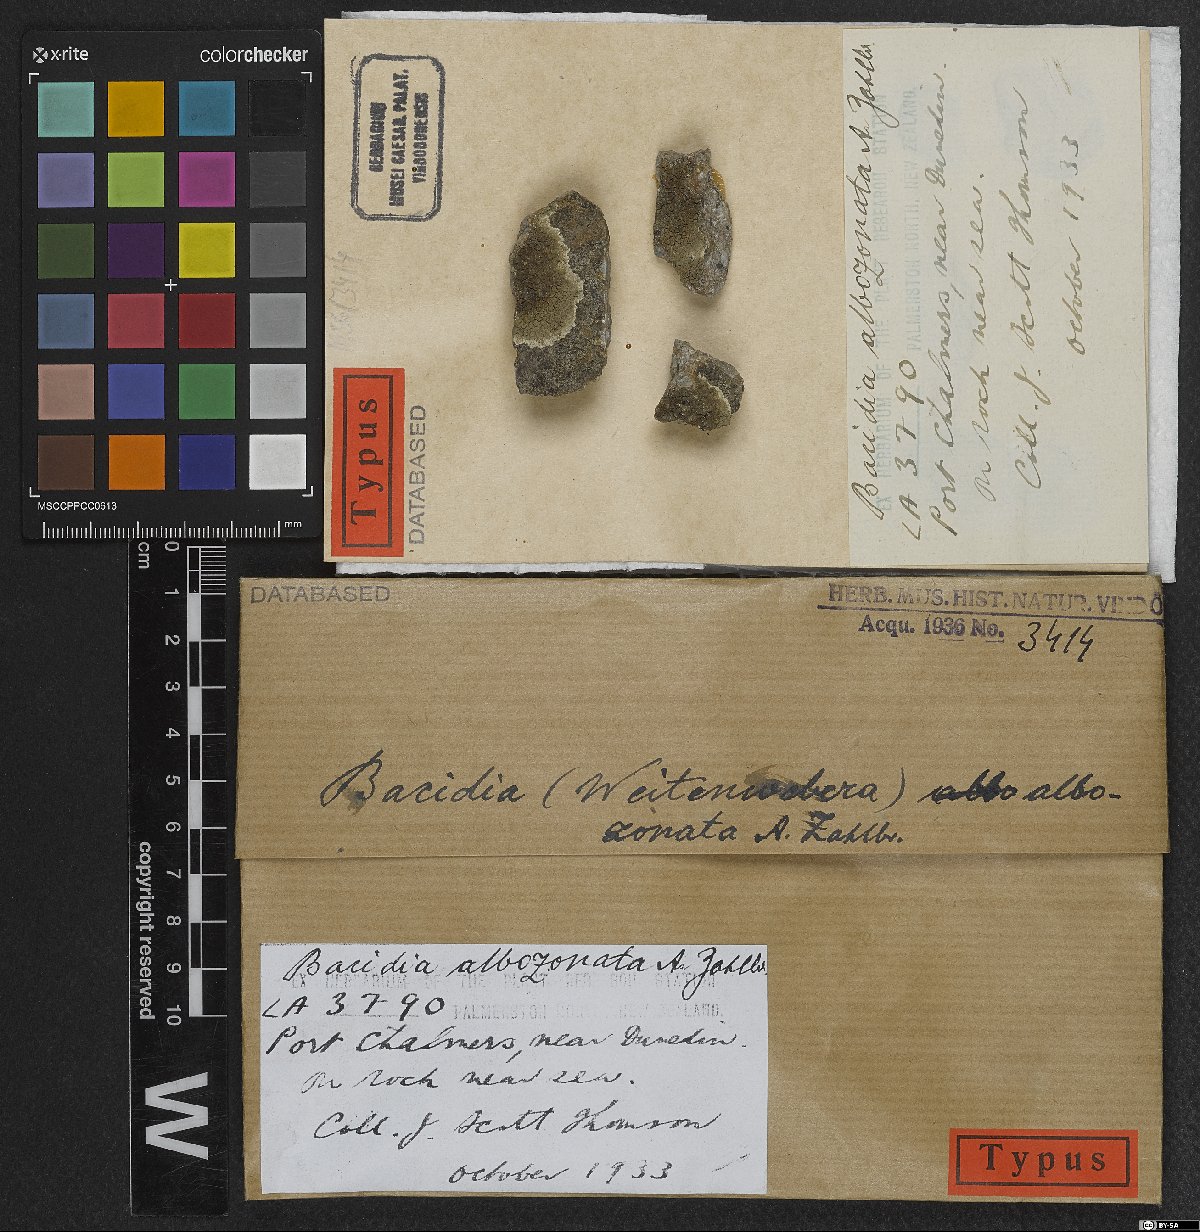 x·rite
colorchecker
MSCCPPCC0613
mm
HERBARIUM
MUSEI CAESAR. PALAT.
VINDOBONENSIS
Typus
DATABASED
Bacidia albozonata A. Zahlbr
EX HERBARIUM OF THE PLANT RESEARCH STATION
LA 3790
PALMERSTON NORTH, NEW ZEALAND.
Port Chalmers, near Dunedin.
on rock near sea.
Coll. J. Scott Thomson
October 1933
cm
0
1
2
3
4
5
6
7
8
9
10
copyright reserved
W
DATABASED
HERB. MUS. HIST. NATUR. VINDO
Acqu. 1936 No. 3414
Bacidia (Weitenwebera) albo albo-
zonata A. Zahlbr.
Bacidia albozonata A. Zahlbr
EX HERBARIUM OF THE PLANT STATION
LA 3790
PALMERSTON NORTH, NEW ZEALAND.
Port Chalmers, near Dunedin.
on rock near sea.
Coll. J. Scott Thomson
October 1933
Typus
CC BY-SA